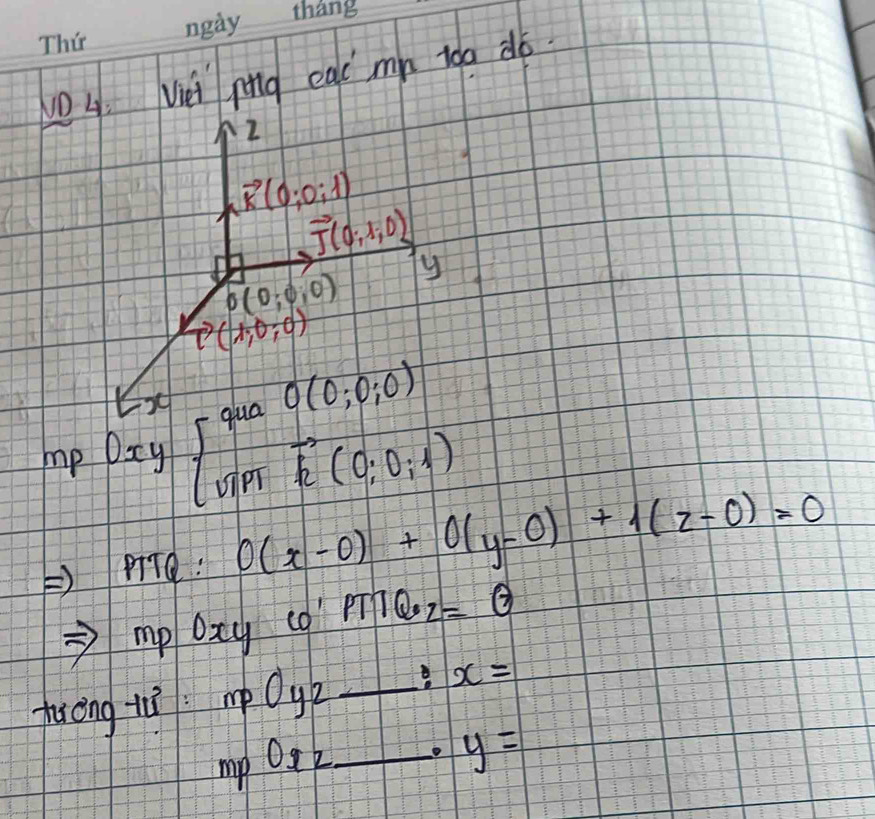 Thứ ngày tháng
VD 4. Viết ptrg các mp toạ độ.
z
k⃗(0;0;1)
j⃗(0;1;0)
y
O(0;0;0)
i⃗(1;0;0)
x
mp Oxy { qua O(0;0;0)
VTPT k⃗ (0;0;1)
⇒ PTTQ: 0(x-0) + 0(y-0) + 1(z-0) = 0
⇒ mp Oxy có PTTQ: z = 0
tương tự: mp Oyz ___: x =
mp Oxz ___: y =